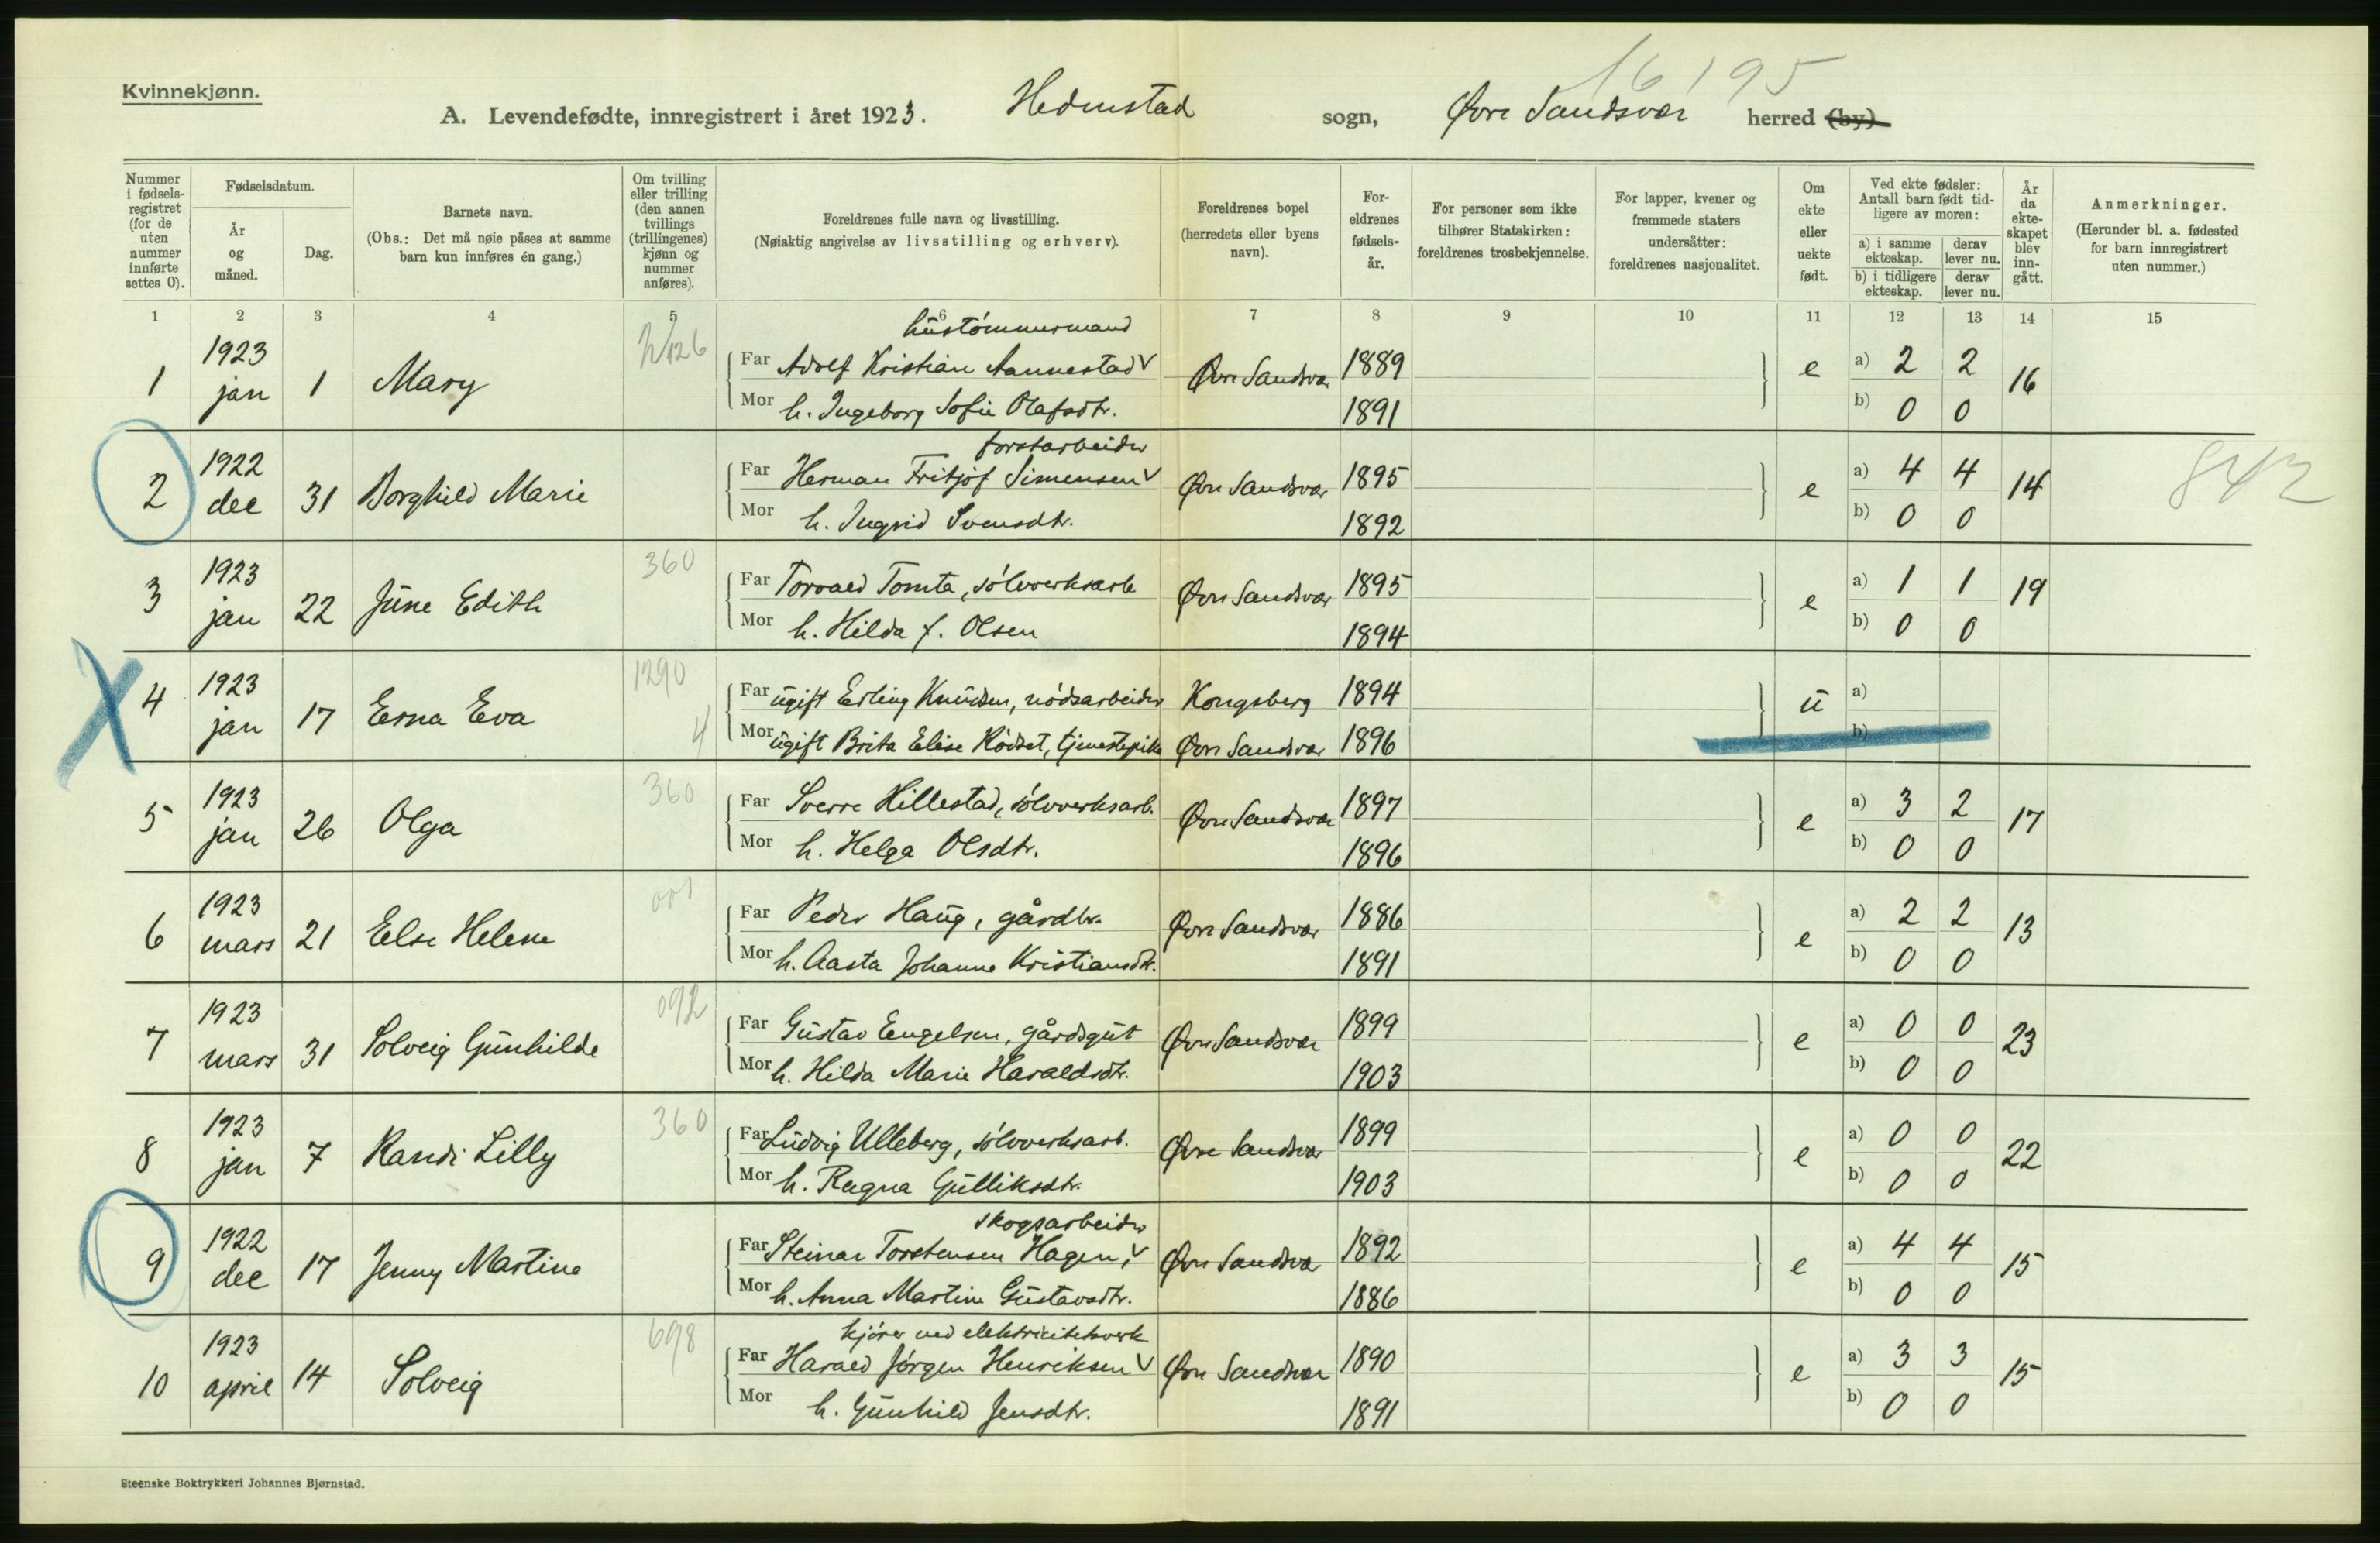 16195
Kvinnekjønn.
A. Levendefødte, innregistrert i året 1923. Hedenstad sogn, Øvre Sandsvær herred (by)
Nummer i fødsels-registret (for de uten nummer innførte settes 0).
Fødselsdatum.
År og måned.
Dag.
Barnets navn.
(Obs.: Det må nøie påses at samme barn kun innføres én gang.)
Om tvilling eller trilling (den annen tvillings (trillingenes) kjønn og nummer anføres).
Foreldrenes fulle navn og livsstilling.
(Nøiaktig angivelse av livsstilling og erhverv).
Foreldrenes bopel (herredets eller byens navn).
For-eldrenes fødsels-år.
For personer som ikke tilhører Statskirken: foreldrenes trosbekjennelse.
For lapper, kvener og fremmede staters undersåtter: foreldrenes nasjonalitet.
Om ekte eller uekte født.
Ved ekte fødsler: Antall barn født tid-ligere av moren:
a) i samme ekteskap.
derav lever nu.
b) i tidligere ekteskap.
derav lever nu.
År da ekte-skapet blev inn-gått.
Anmerkninger.
(Herunder bl. a. fødested for barn innregistrert uten nummer.)
1 2 3 4 5 6 7 8 9 10 11 12 13 14 15
hustømmermand
1 1923 jan 1 Mary Far Adolf Kristian Aannestad Øvre Sandsvær 1889 e a) 2 2 16
Mor h. Ingeborg Sofie Olafsdtr. 1891 b) 0 0
forstarbeider
2 1922 dec 31 Borghild Marie Far Herman Fritjof Simensen Øvre Sandsvær 1895 e a) 4 4 14 842
Mor h. Ingrid Svensdtr. 1892 b) 0 0
3 1923 jan 22 June Edith 360 Far Torvald Tomta, sølvverksarb Øvre Sandsvær 1895 e a) 1 1 19
Mor h. Hilda f. Olsen 1894 b) 0 0
4 1923 jan 17 Erna Eva 1290 4 Far ugift Erling Knudsen, nødsarbeider Kongsberg 1894 u a)
Mor ugift Brita Elise Rødset, tjenestepike Øvre Sandsvær 1896 b)
5 1923 jan 26 Olga 360 Far Sverre Hillestad, sølvverksarb. Øvre Sandsvær 1897 e a) 3 2 17
Mor h. Helga Olsdtr. 1896 b) 0 0
6 1923 mars 21 Else Helene 001 Far Peder Haug, gårdbr. Øvre Sandsvær 1886 e a) 2 2 13
Mor h. Aasta Johanne Kristiansdtr. 1891 b) 0 0
7 1923 mars 31 Solveig Gunhilde 092 Far Gustav Engelsen, gårdsgut Øvre Sandsvær 1899 e a) 0 0 23
Mor h. Hilda Marie Haraldsdtr. 1903 b) 0 0
8 1923 jan 7 Randi Lilly 360 Far Ludvig Ulleberg, sølvverksarb. Øvre Sandsvær 1899 e a) 0 0 22
Mor h. Ragna Gulliksdtr. 1903 b) 0 0
skogsarbeider
9 1922 dec 17 Jenny Martine Far Steinar Torstensen Hagen, Øvre Sandsvær 1892 e a) 4 4 15
Mor h. Anna Martine Gustavsdtr. 1886 b) 0 0
kjører ved elektricitetsverk
10 1923 april 14 Solveig 698 Far Harald Jørgen Henriksen Øvre Sandsvær 1890 e a) 3 3 15
Mor h. Gunhild Jensdtr. 1891 b) 0 0
Steenske Boktrykkeri Johannes Bjørnstad.